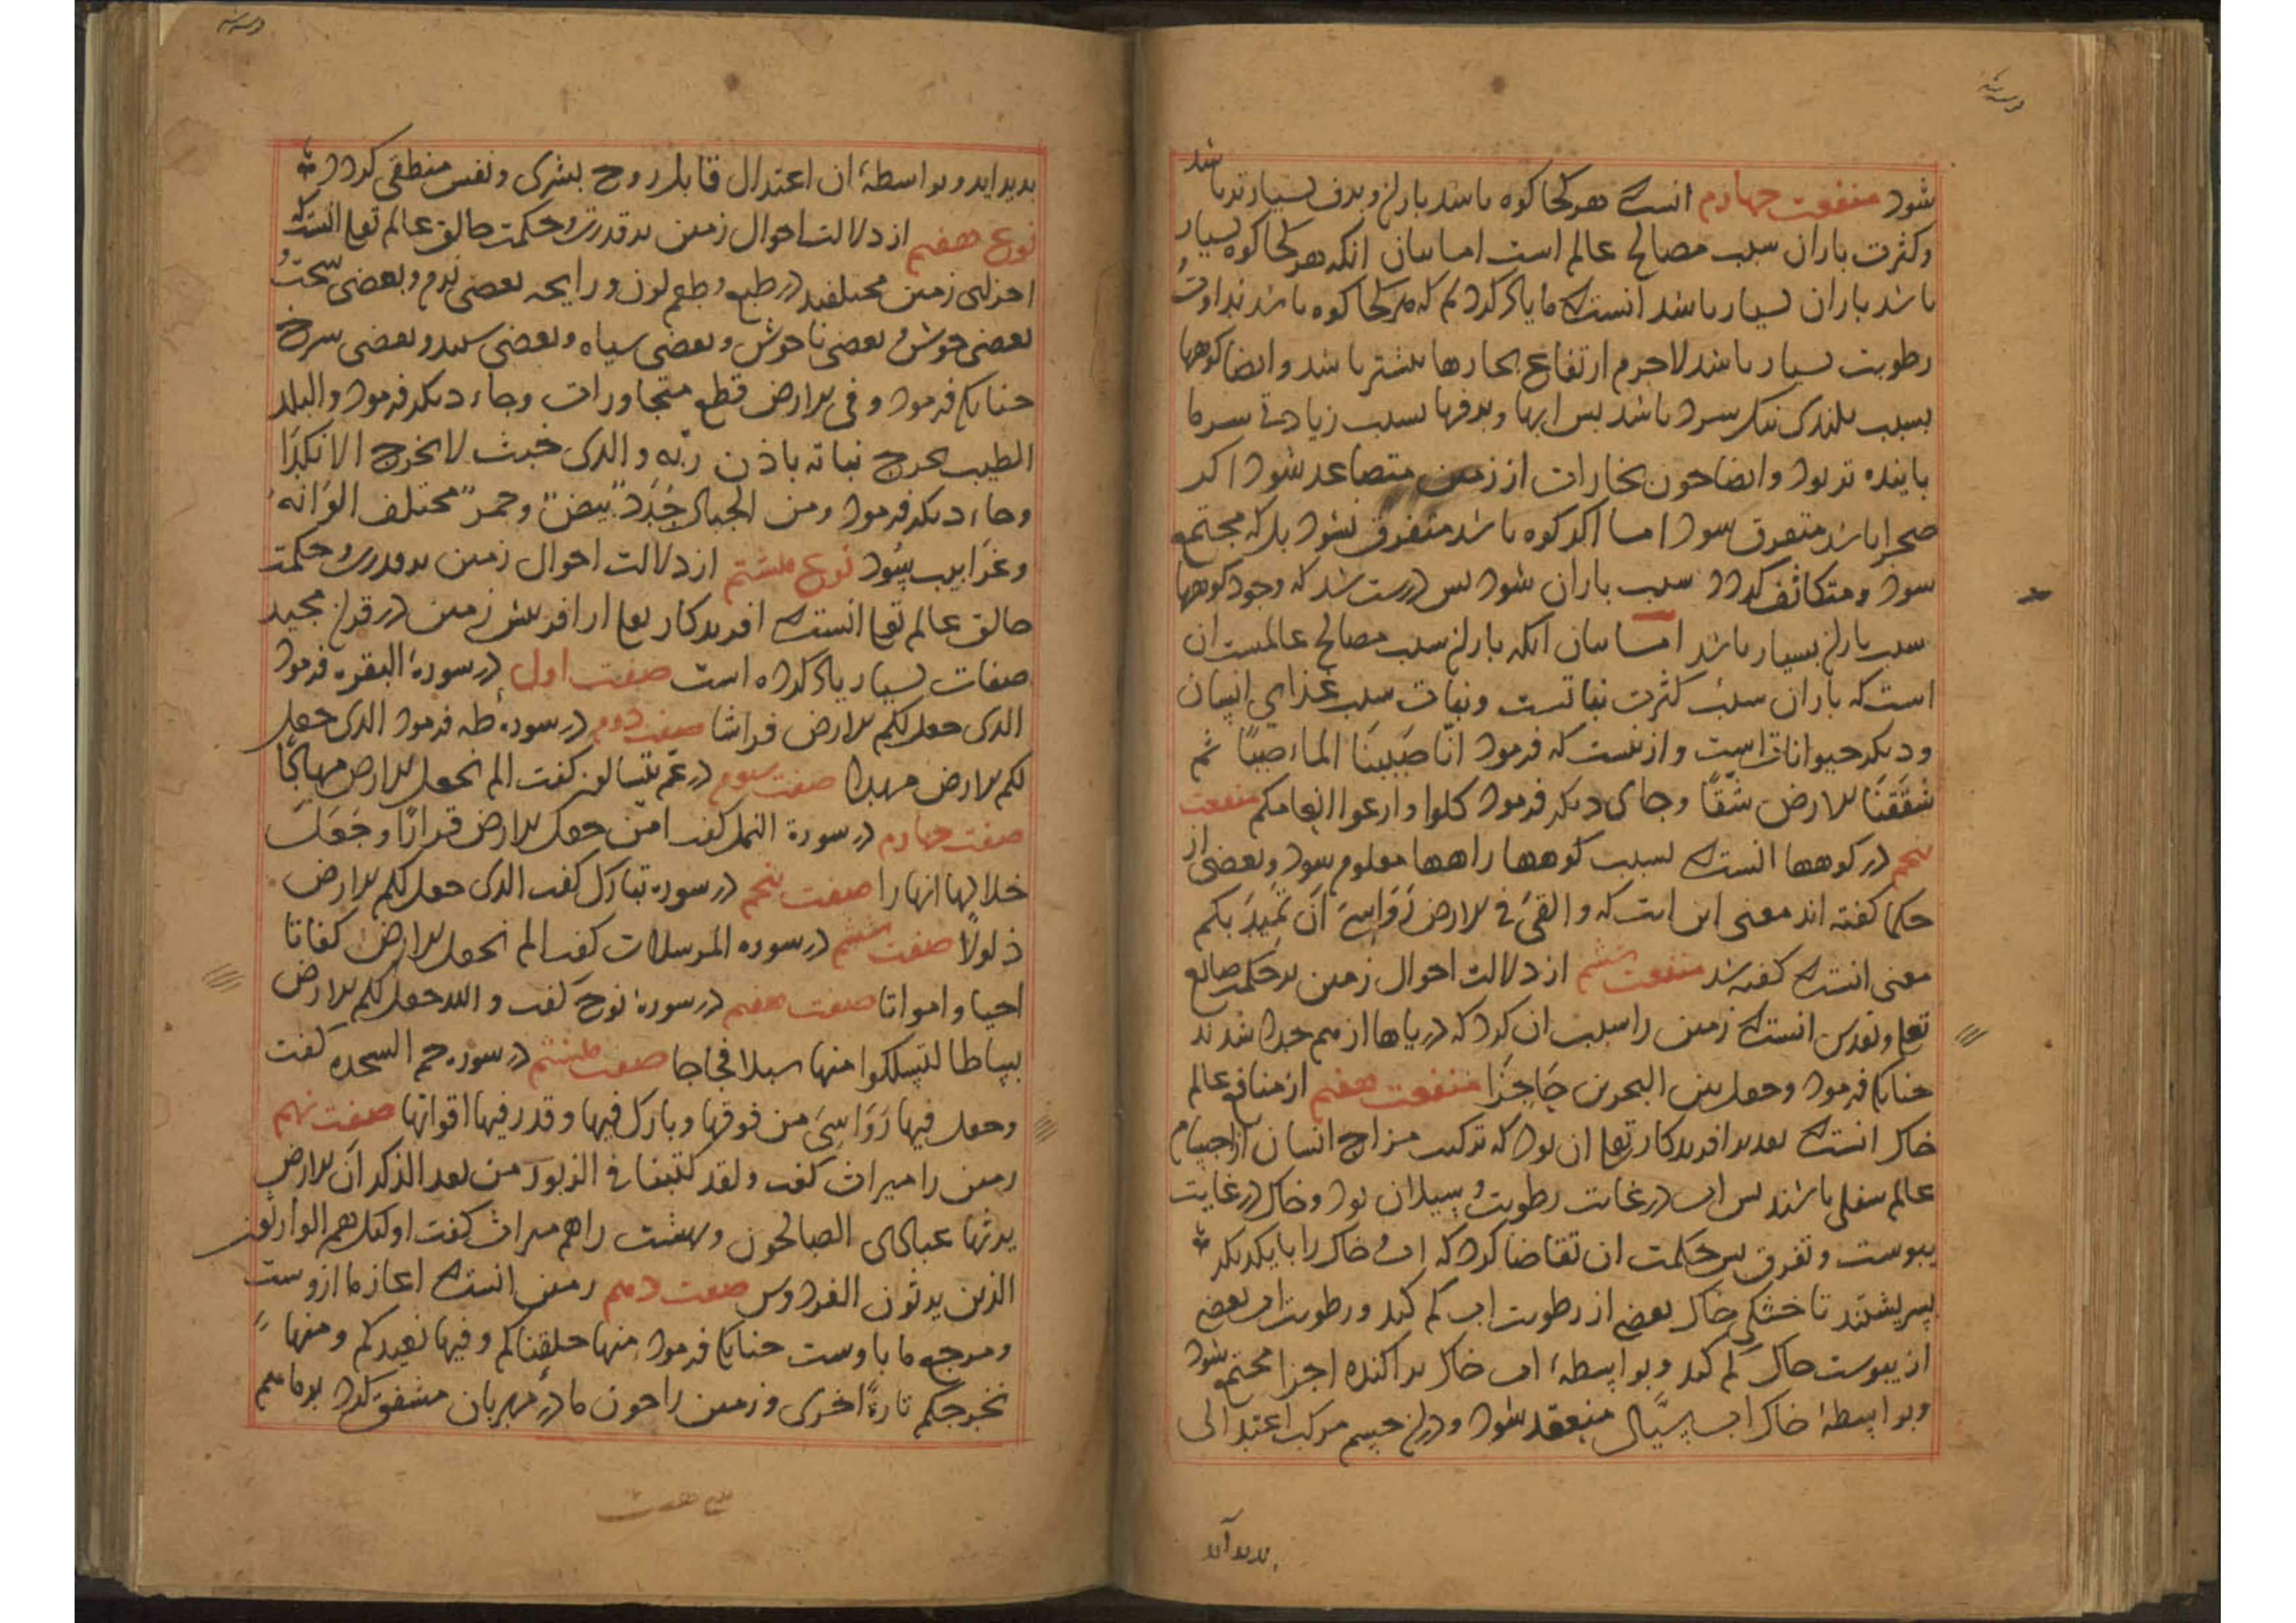 شود منفعت چهارم انست که هر کجا کوه باشد باران و برف بسیارتر باشد
و کثرت باران سبب مصالح عالم است اما بیان انکه هر کجا کوه بسیار
باشد باران بسیار باشد انست که ما یاد کردیم که هر کجا کوه باشد نداوت و
رطوبت بسیار باشد لاجرم ارتفاع بخارها بیشتر باشد و ایضا کوهها
بسبب بلندی سرد باشد پس ابرها و برفها بسبب زیادتی سرما
پاینده تر بود و ایضا چون بخارات از زمین متصاعد شود اکر
صحرا باشد متفرق شود اما اکر کوه باشد متفرق نشود بلکه مجتمع
شود و متکاثف کردد سبب باران شود پس درست شد که وجود کوهها
سبب باران بسیار باشد اما بیان انکه باران سبب مصالح عالمست ان
است که باران سبب کثرت نباتست و نبات سبب غذای انسان
و دیکر حیوانات است و ازینست که فرمود انا صَبَبنَا الماء صبًا ثم
شقَقنَا الارض شقًا و جای دیکر فرمود کلوا وارعوا انعامکم منفعت
پنجم در کوهها انست که بسبب کوهها راهها معلوم شود و بعضی از
حکما کفته اند معنی این ایت که و القیَ فی الارض رَوَاسِیَ اَن تَمِیدَ بکم
معنی انست که کفته شد منفعت ششم از دلالت احوال زمین بر حکمت صانع
تعا و تقدس انست که زمین را سبب ان کرد که دریاها از هم جدا شدند
چنانکه فرمود و جعل بین البحرین حَاجِزًا منفعت هفتم از منافع عالم
خاک انست که تقدیر افریدکار تعا ان بود که ترکیب مزاج انسان از اجسام
عالم سفلی باشند پس اب در غایت رطوبت و سیلان بود و خاک در غایت
یبوست و تفرق پس حکمت ان تقاضا کرد که اب و خاک را بایکدیکر
بسریشتند تا خشکی خاک بعضی از رطوبت اب کم کند و رطوبت اب بعضی
از یبوست خاک کم کند و بواسطهٔ اب خاک پراکنده اجزا مجتمع شود
و بواسطهٔ خاک اب سیّال منعقد شود و دران جسم مرکب اعتدالی
پدید آید
پدید اید و بواسطهٔ ان اعتدال قابل روح بشری و نفس منطقی کردد
نوع هفتم از دلالت احوال زمین بر قدرت و حکمت خالق عالم تعا انست که
اجزای زمین مختلفند در طبع و طعم لون و رایحه بعضی نرم و بعضی سخت و
بعضی خوش و بعضی ناخوش و بعضی سیاه و بعضی سپید و بعضی سرخ
چنانکه فرمود و فی الارض قطع متجاورات و جاء دیکر فرمود والبلد
الطیب یخرج نباته باذن ربّه والذی خبث لا یخرج الا نکدًا
و جاء دیکر فرمود و من الجبال جُدَدٌ بیضٌ و حمرٌ مختلف الوَانهُ
و غَرَابیب سُود نوع هشتم از دلالت احوال زمین بر قدرت و حکمت
خالق عالم تعا انست که افریدکار تعا از افرینش زمین در قران مجید
صفات بسیار یاد کرده است صفت اول در سورهٔ البقره فرمود
الذی جعل لکم الارض فراشا صفت دوم در سورهٔ طه فرمود الذی جعل
لکم الارض مهدا صفت سوم در عم یتسالون کفت الم نجعل الارض مهادًا
صفت چهارم در سورة النمل کفت امن جعل الارض قرارًا و جَعَلَ
خلالها انهارا صفت پنجم در سوره تبارک کفت الذی جعل لکم الارض
ذلولًا صفت ششم در سوره المرسلات کفت الم نجعل الارض کفاتا
احیا و امواتا صفت هفتم در سورهٔ نوح کفت و الله جعل لکم الارض
بساطا لتسلکوا منها سبلا فجاجا صفت هشتم در سوره حم السجده کفت
و جعل فیها رَوَاسِیَ من فوقها و بارک فیها و قدر فیها اقواتها صفت نهم
زمین را میراث کفت و لقد کتبنا فی الزبور من بعد الذکر اَن الارض
یرثها عبادی الصالحون و بهشت را هم میراث کفت اولئک هم الوارثون
الذین یرثون الفردوس صفت دهم زمین انست که اغاز ما ازوست
و مرجع ما باوست چنانکه فرمود منها خلقناکم و فیها نعیدکم و منها
نخرجکم تارةً اخری و زمین را چون مادر مهربان مشفق کرد بر ما هم